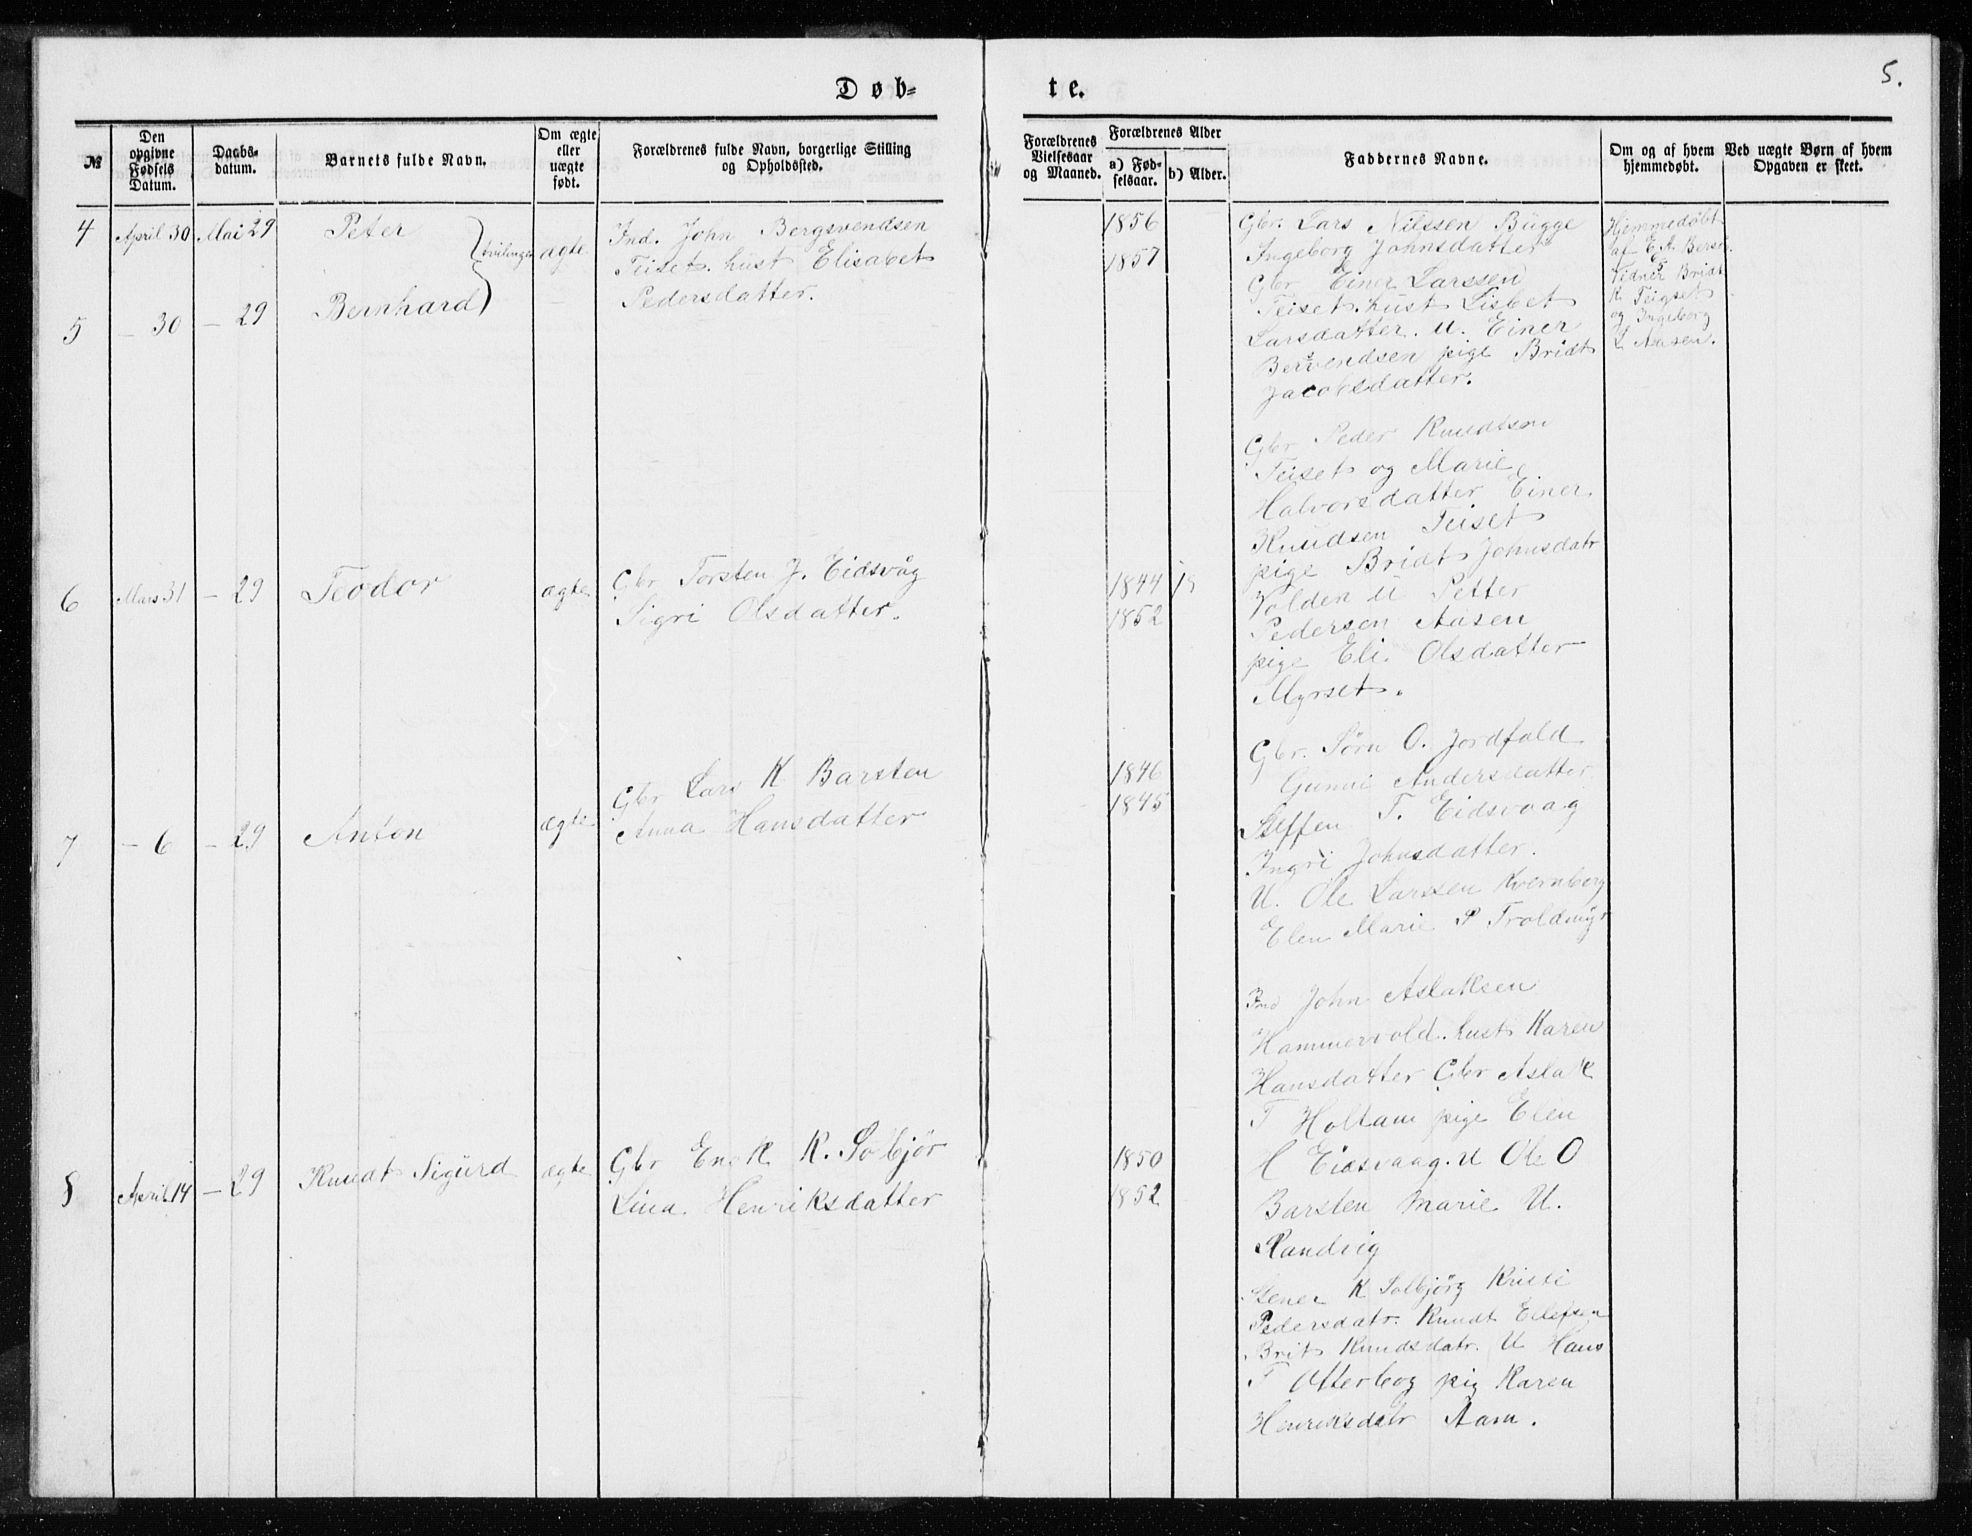 Døb-
te.
5.
№
Den opgivne Fødsels Datum.
Daabs-datum.
Barnets fulde Navn.
Om ægte eller uægte født.
Forældrenes fulde Navn, borgerlige Stilling og Opholdssted.
Forældrenes Vielsesaar og Maaned.
Forældrenes Alder
a) Fød-selsaar.
b) Alder.
Faddernes Navne.
Om og af hvem hjemmedøbt.
Ved uægte Børn af hvem Opgaven er skeet.
4 April 30 Mai 29 Peter tvilinge ægte
Ind. John Bergsvendsen
Teiset. hust Elisabet
Pedersdatter.
1856
1857
5 - 30 - 29 Bernhard
Gbr. Lars Nilssen Bügge
Ingeborg Johnsdatter
Gbr Einer Larssen
Teiset. hust Lisbet
Larsdatter. U. Einer
Bersvendsen pige Bridt
Jacobsdatter.
Hjemmedøbt
af E. A. Bersås
Vidner Bridt
K. Teigset
og Ingeborg
L Aasen.
Gbr Peder Knudtsen
Teiset og Marie
Halvorsdatter Einer
Knudsen Teiset
pige Bridt Johnsdatr
Volden U Petter
Pedersen Aasen
pige Eli Olsdatter
Myrset.
6 Mars 31 - 29 Teodor ægte
Gbr Torsten J. Eidsvåg
Sigri Olsdatter.
1844
1852
Gbr. Sørn O. Jordfald
Gunni Andersdatter
Steffen T. Eidsvaag
Ingri Johnsdatter.
U. Ole Larssen Kvernberg
Elen Marie P Troldmyr
7 - 6 - 29 Anton ægte
Gbr Lars K Barsten
Anna Hansdatter
1846
1845
Ind John Aslaksen
Hammervold. hust Karen
Hansdatter Gbr Aslak
T Holtam pige Elen
H Eidsvaag. U Ole O
Barsten Marie U.
Randvig
8 April 14 - 29 Knudt Sigürd ægte
Gbr Enok K. Solbjør
Lina Henriksdatter
1850
1852
Stener K Solbjørg Kristi
Pedersdatr. Knudt Ellefsen
Brit Knudsdatr. U Hans
T Otterbog pig Karen
Henriksdatr Aam.